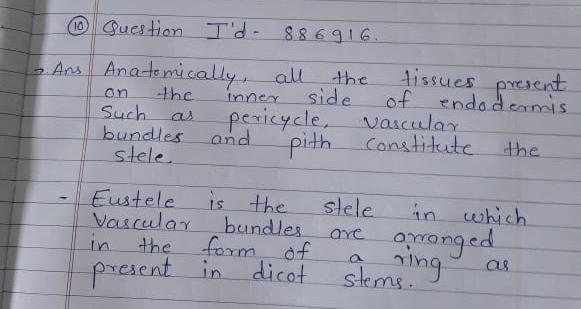 10 Question I'd - 886916.
→ Ans Anatomically, all the tissues present
on the inner side of endodermis
Such as pericycle, vascular
bundles and pith constitute the
stele.
- Eustele is the stele in which
Vascular bundles are arranged
in the form of a ring as
present in dicot stems.